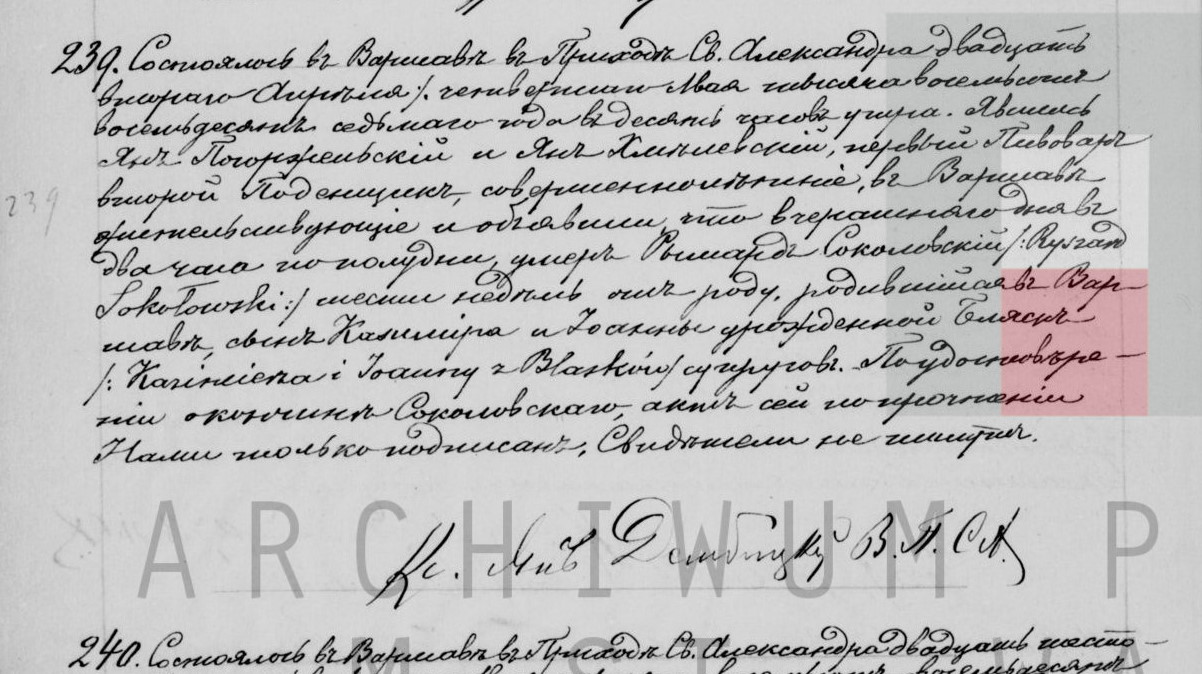 239. Состоялось въ Варшавѣ въ Приходѣ Св. Александра двадцать
втораго Апрѣля /: четвертаго Мая тысяча восемьсотъ
восемьдесятъ седьмаго года въ десять часовъ утра. Явились
Янъ Погоржельскій и Янъ Хмѣлевскій, первый Пивоваръ
второй Поденщикъ, совершеннолѣтніе, въ Варшавѣ
жительствующіе и объявили, что вчерашняго дня въ
два часа пополудни, умеръ Рышардъ Соколовскій /: Ryszard
Sokołowski :/ шесть недѣль отъ роду, родившійся въ Вар-
шавѣ, сынъ Казиміра и Іоанны урожденной Бляскъ
/: Kazimierza i Joanny z Blasków / супруговъ. По удостовѣре-
ніи о кончинѣ Соколовскаго, актъ сей по прочтеніи
Нами только подписанъ, Свидѣтели не пишутъ.
239
Кс. Янъ Дембицкій В.П.С.А.
240. Состоялось въ Варшавѣ въ Приходѣ Св. Александра двадцать шесто-
восемьдесятъ
ARCHIWUM P